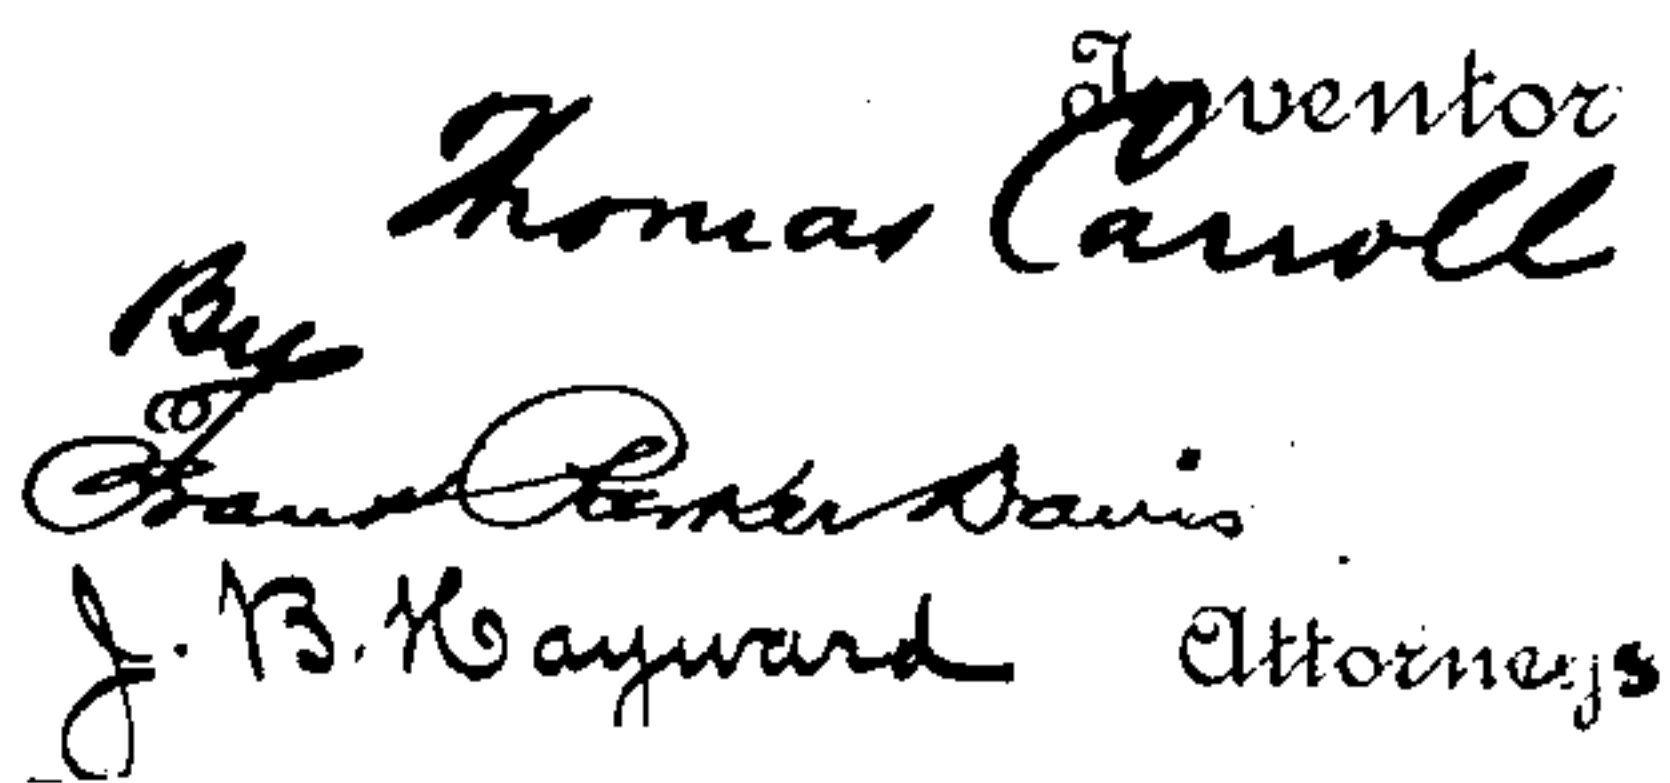 Inventor
Thomas Carroll
By
Frank Parker Davis
J. B. Hayward Attorneys